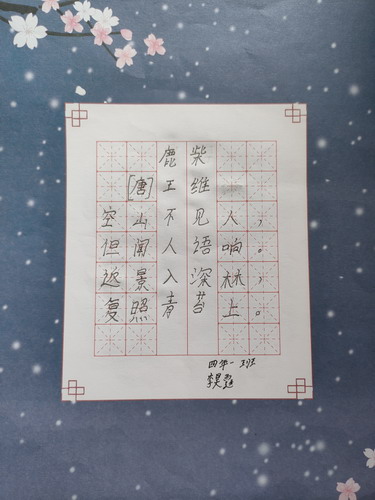 鹿柴
[唐]王维
空山不见人，
但闻人语响。
返景入深林，
复照青苔上。
四年一班